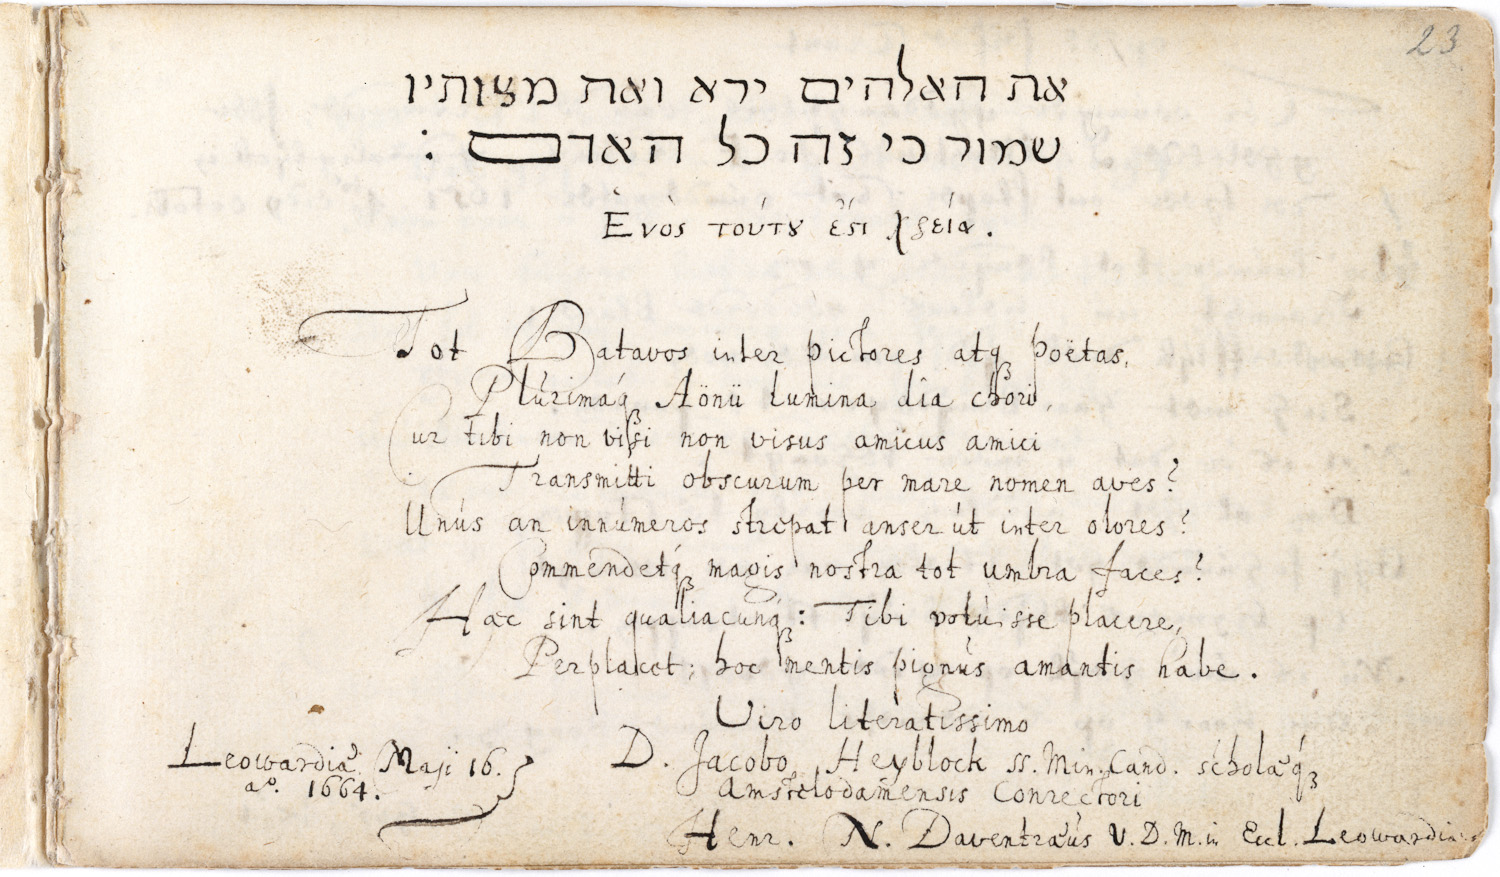 23
את האלהים ירא ואת מצותיו
שמור כי זה כל האדם :
Ἑνὸς τούτȣ ἐϛι χρεία.
Tot Batavos inter pictores atqꝫ poëtas,
Plúrimáqꝫ Aönii lumina dîa chori,
Cur tibi non visi non visus amicus amici
Transmitti obscurum per mare nomen aves?
Unús an innúmeros strepat anser út inter olores?
Commendetqꝫ magis nostra tot umbra faces?
Haec sint qualiacunqꝫ: Tibi volúisse placere,
Perplacet; hoc mentis pignús amantis habe.
Viro literatissimo
D. Jacobo Heyblock ss. Min. Cand. scholaeqꝫ
Amstelodamensis Conrectori
Leowardiae Maji 16.
aº. 1664.
Henr. N. Daventraeús V. D. M. in Eccl. Leowardia